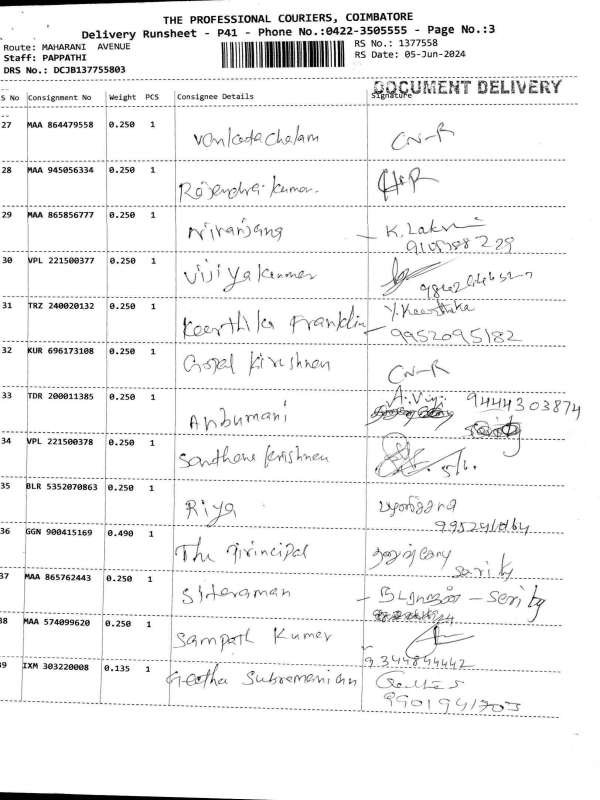 THE PROFESSIONAL COURIERS, COIMBATORE
Delivery Runsheet - P41 - Phone No.:0422-3505555 - Page No.:3
Route: MAHARANI AVENUE
RS No.: 1377558
Staff: PAPPATHI
RS Date: 05-Jun-2024
DRS No.: DCJB137755803
DOCUMENT DELIVERY
S No Consignment No Weight PCS Consignee Details Signature
27 MAA 864479558 0.250 1 Venkatachalam CN-R
28 MAA 945056334 0.250 1 Rajendra kumar.
29 MAA 865856777 0.250 1 Niranjana K. Lakshmi
30 VPL 221500377 0.250 1 Vijiyakumar
31 TRZ 240020132 0.250 1 Keerthika Franklin Y. Keerthika
9952095182
32 KUR 696173108 0.250 1 Gopal kirushnan CN-R
33 TDR 200011385 0.250 1 Anbumani 9444303874
34 VPL 221500378 0.250 1 Santhana krishnan 5/6.
35 BLR 5352070863 0.250 1 Riya
36 GGN 900415169 0.490 1 The Principal
37 MAA 865762443 0.250 1 Sitteraman
38 MAA 574099620 0.250 1 Sampath Kumar
9344844442
39 IXM 303220008 0.135 1 Geetha Subramanian
9901941703